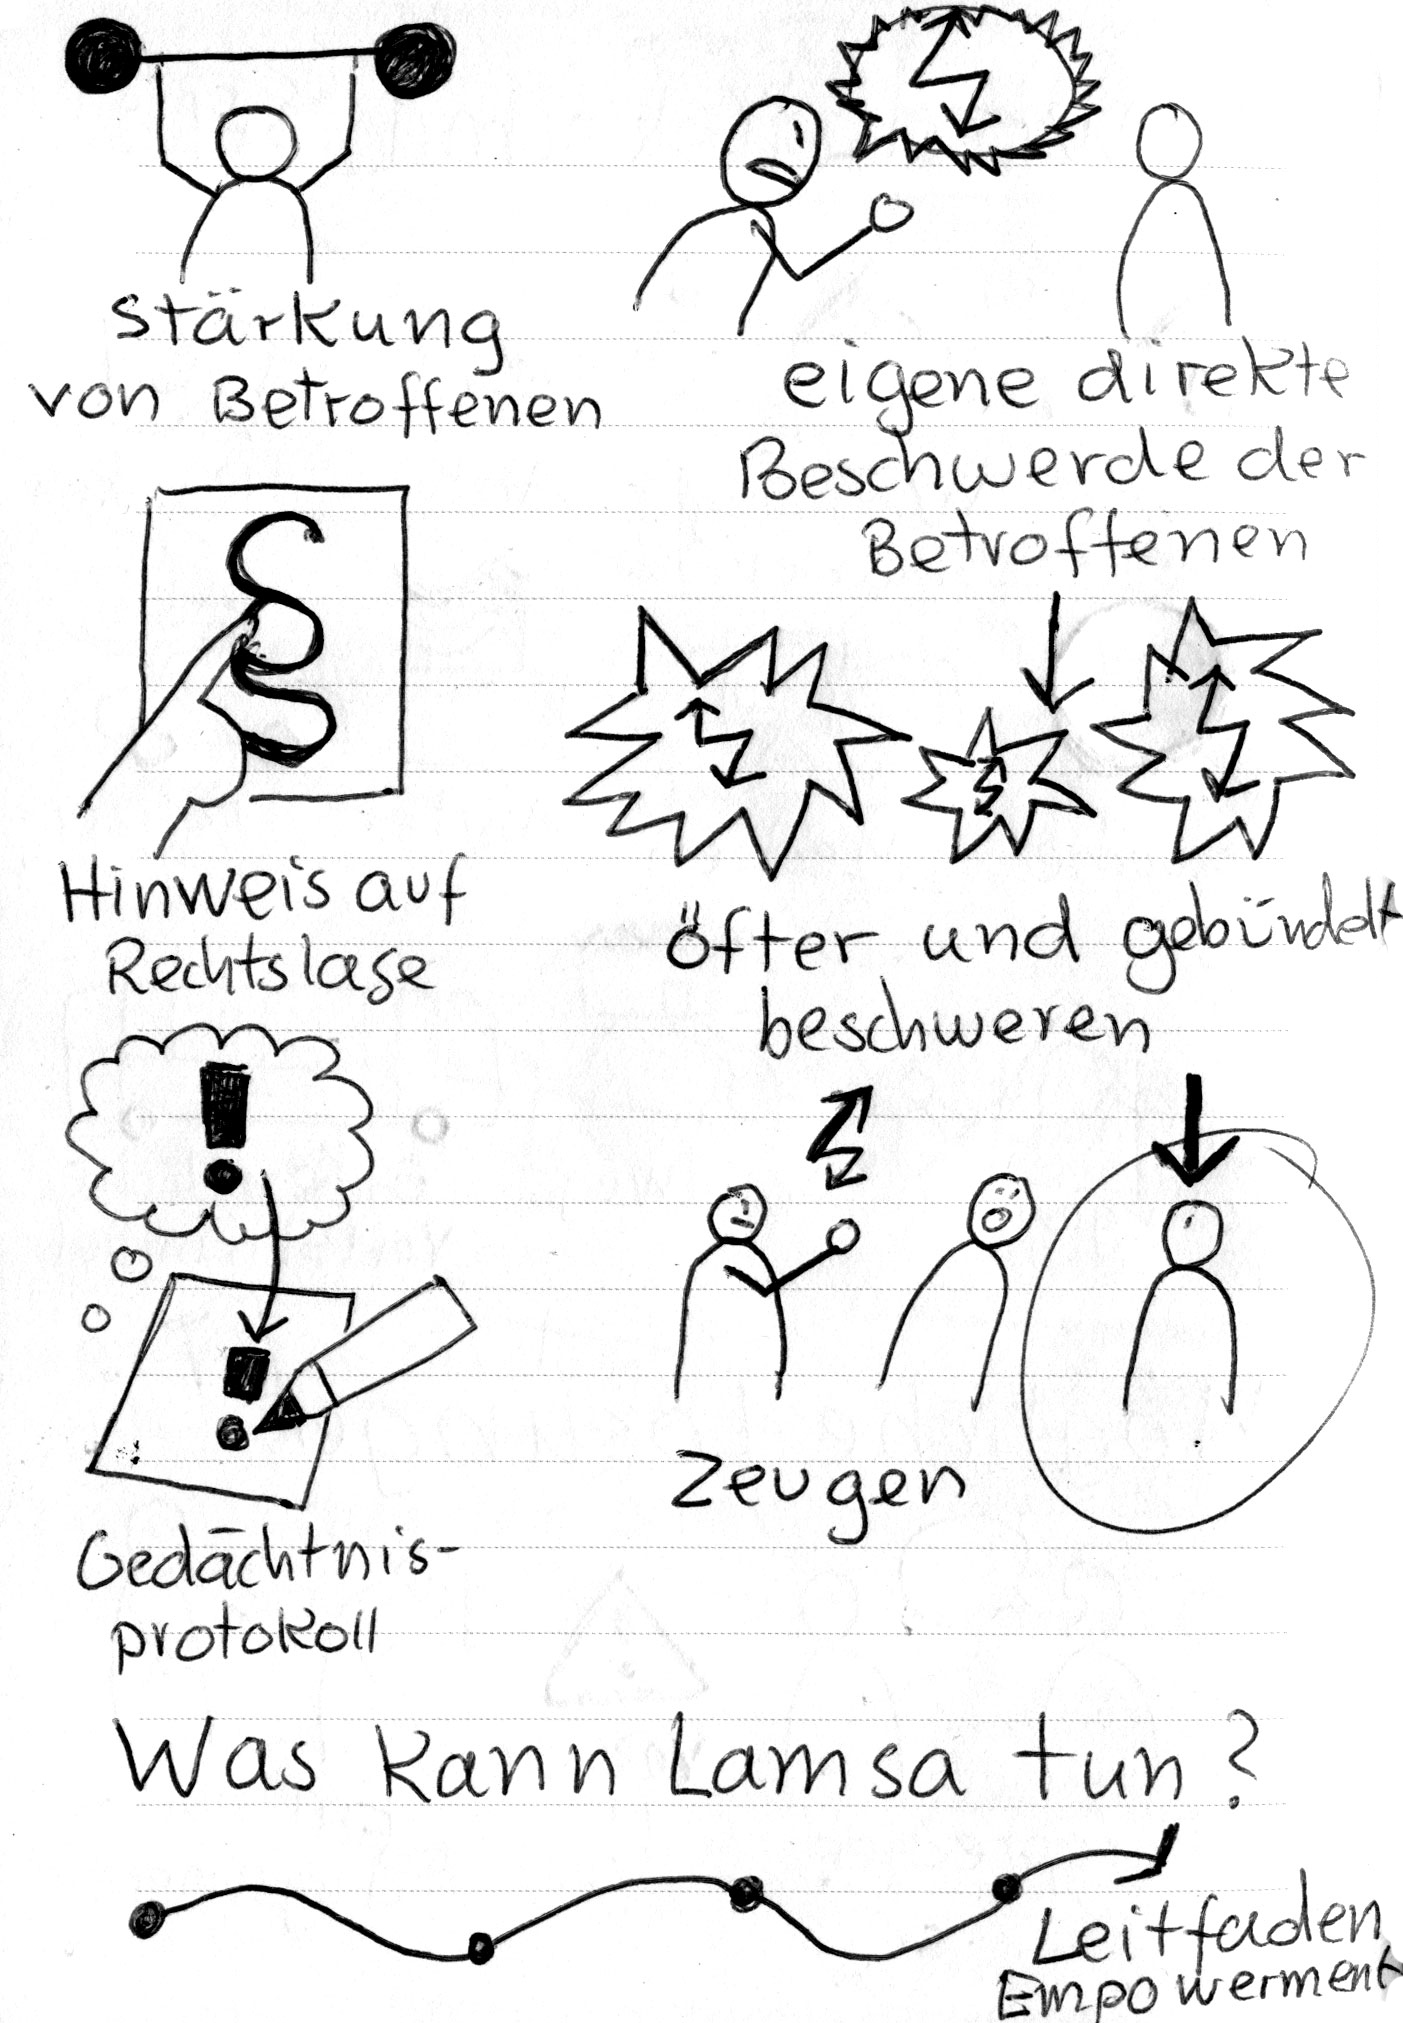 Stärkung
von Betroffenen
eigene direkte
Beschwerde der
Betroffenen
§
Hinweis auf
Rechtslage
öfter und gebündelt
beschweren
!
!
Gedächtnis-
protokoll
Zeugen
Was kann Lamsa tun?
Leitfaden
Empowerment